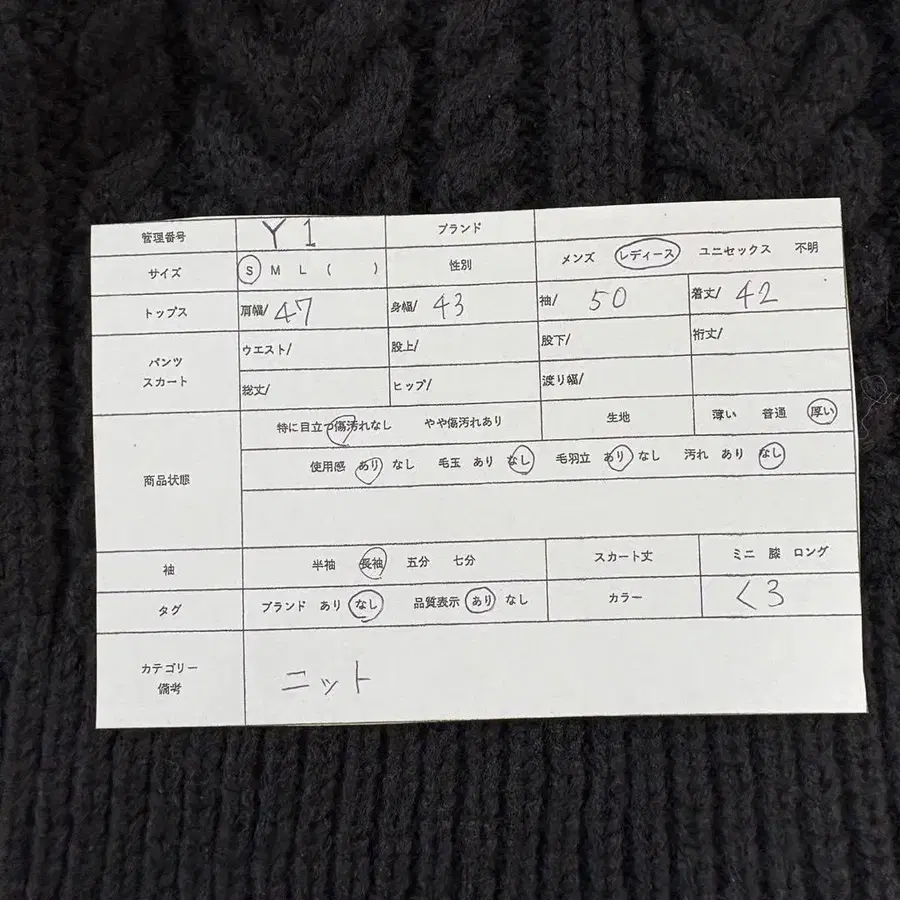 管理番号 Y1 ブランド
サイズ S M L ( ) 性別 メンズ レディース ユニセックス 不明
トップス 肩幅/ 47 身幅/ 43 袖/ 50 着丈/ 42
パンツ スカート ウエスト/ 股上/ 股下/ 裄丈/
総丈/ ヒップ/ 渡り幅/
商品状態 特に目立つ傷汚れなし やや傷汚れあり 生地 薄い 普通 厚い
使用感 あり なし 毛玉 あり なし 毛羽立 あり なし 汚れ あり なし
袖 半袖 長袖 五分 七分 スカート丈 ミニ 膝 ロング
タグ ブランド あり なし 品質表示 あり なし カラー くろ
カテゴリー 備考 ニット